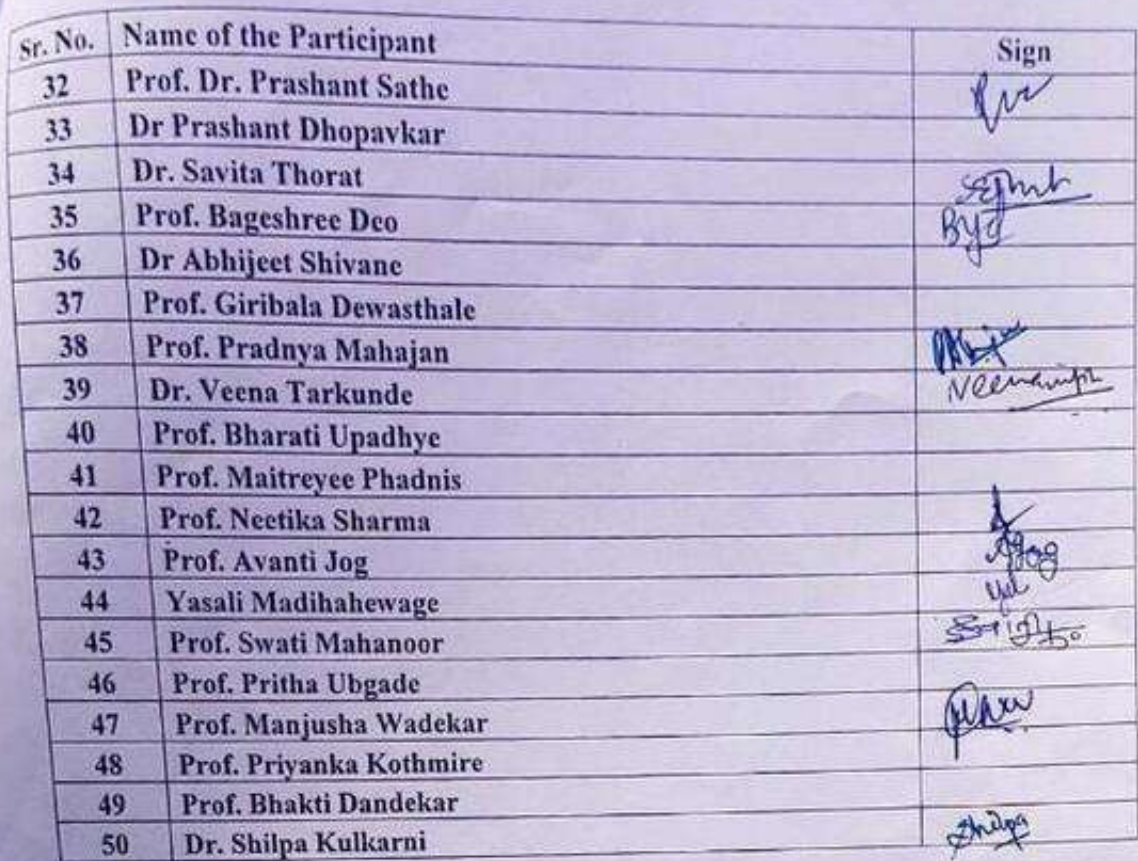 Sr. No. Name of the Participant Sign
32 Prof. Dr. Prashant Sathe
33 Dr Prashant Dhopavkar
34 Dr. Savita Thorat
35 Prof. Bageshree Deo
36 Dr Abhijeet Shivane
37 Prof. Giribala Dewasthale
38 Prof. Pradnya Mahajan
39 Dr. Veena Tarkunde
40 Prof. Bharati Upadhye
41 Prof. Maitreyee Phadnis
42 Prof. Neetika Sharma
43 Prof. Avanti Jog
44 Yasali Madihahewage
45 Prof. Swati Mahanoor
46 Prof. Pritha Ubgade
47 Prof. Manjusha Wadekar
48 Prof. Priyanka Kothmire
49 Prof. Bhakti Dandekar
50 Dr. Shilpa Kulkarni Shilpa